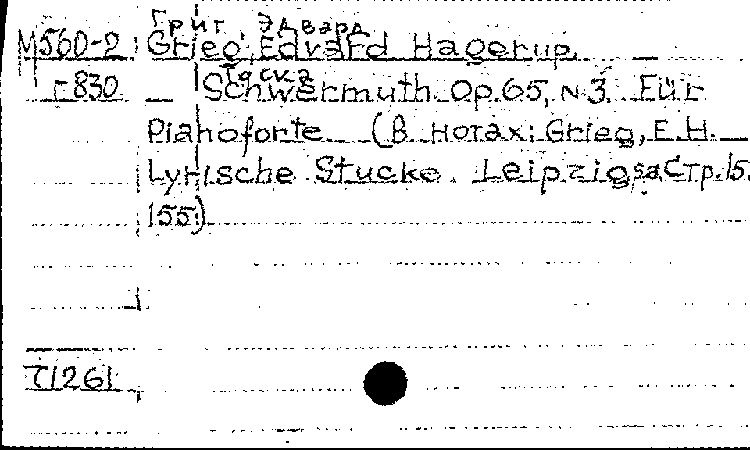 Григ, Эдвард
М560-2 Grieg, Edvard Hagerup.
Тоска
Г-830 Schwermuth. Op. 65, N 3. Für
Pianoforte (В нотах: Grieg, E. H.
Lyrische Stucke. Leipzig sa. Стр. 15.
155)
T1261